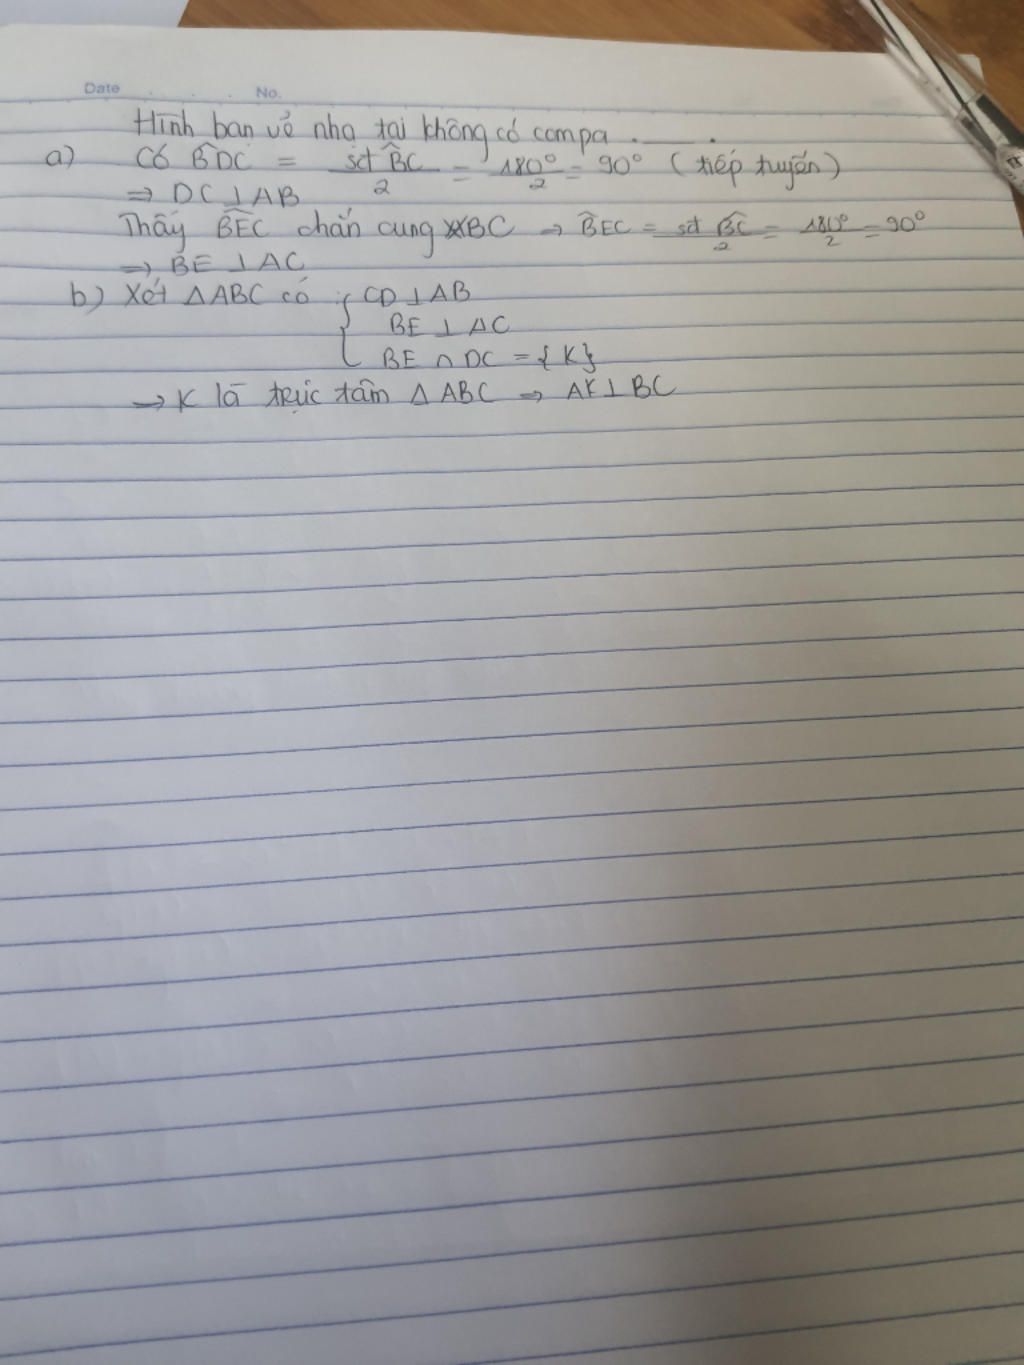 Date No.
Hình bạn vẽ nha tại không có compa ......
a) Có B̂DC = sđ B̂C / 2 = 180° / 2 = 90° ( tiếp tuyến)
⇒ DC ⊥ AB
Thấy B̂EC chắn cung BC ⇒ B̂EC = sđ B̂C / 2 = 180° / 2 = 90°
⇒ BE ⊥ AC
b) Xét △ABC có { CD ⊥ AB
BE ⊥ AC
BE ∩ DC = {K}
⇒ K là trực tâm △ABC ⇒ AK ⊥ BC